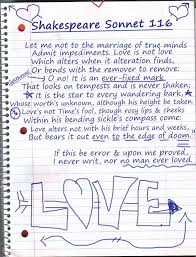 Shakespeare Sonnet 116
Let me not to the marriage of true minds
Admit impediments. Love is not love
Which alters when it alteration finds,
Or bends with the remover to remove:
O no! It is an ever-fixed mark
That looks on tempests and is never shaken;
It is the star to every wandering bark,
Whose worth's unknown, although his height be taken
Love's not Time's fool, though rosy lips & cheeks
Within his bending sickle's compass come:
Love alters not with his brief hours and weeks,
But bears it out even to the edge of doom.
If this be error & upon me proved,
I never writ, nor no man ever loved.